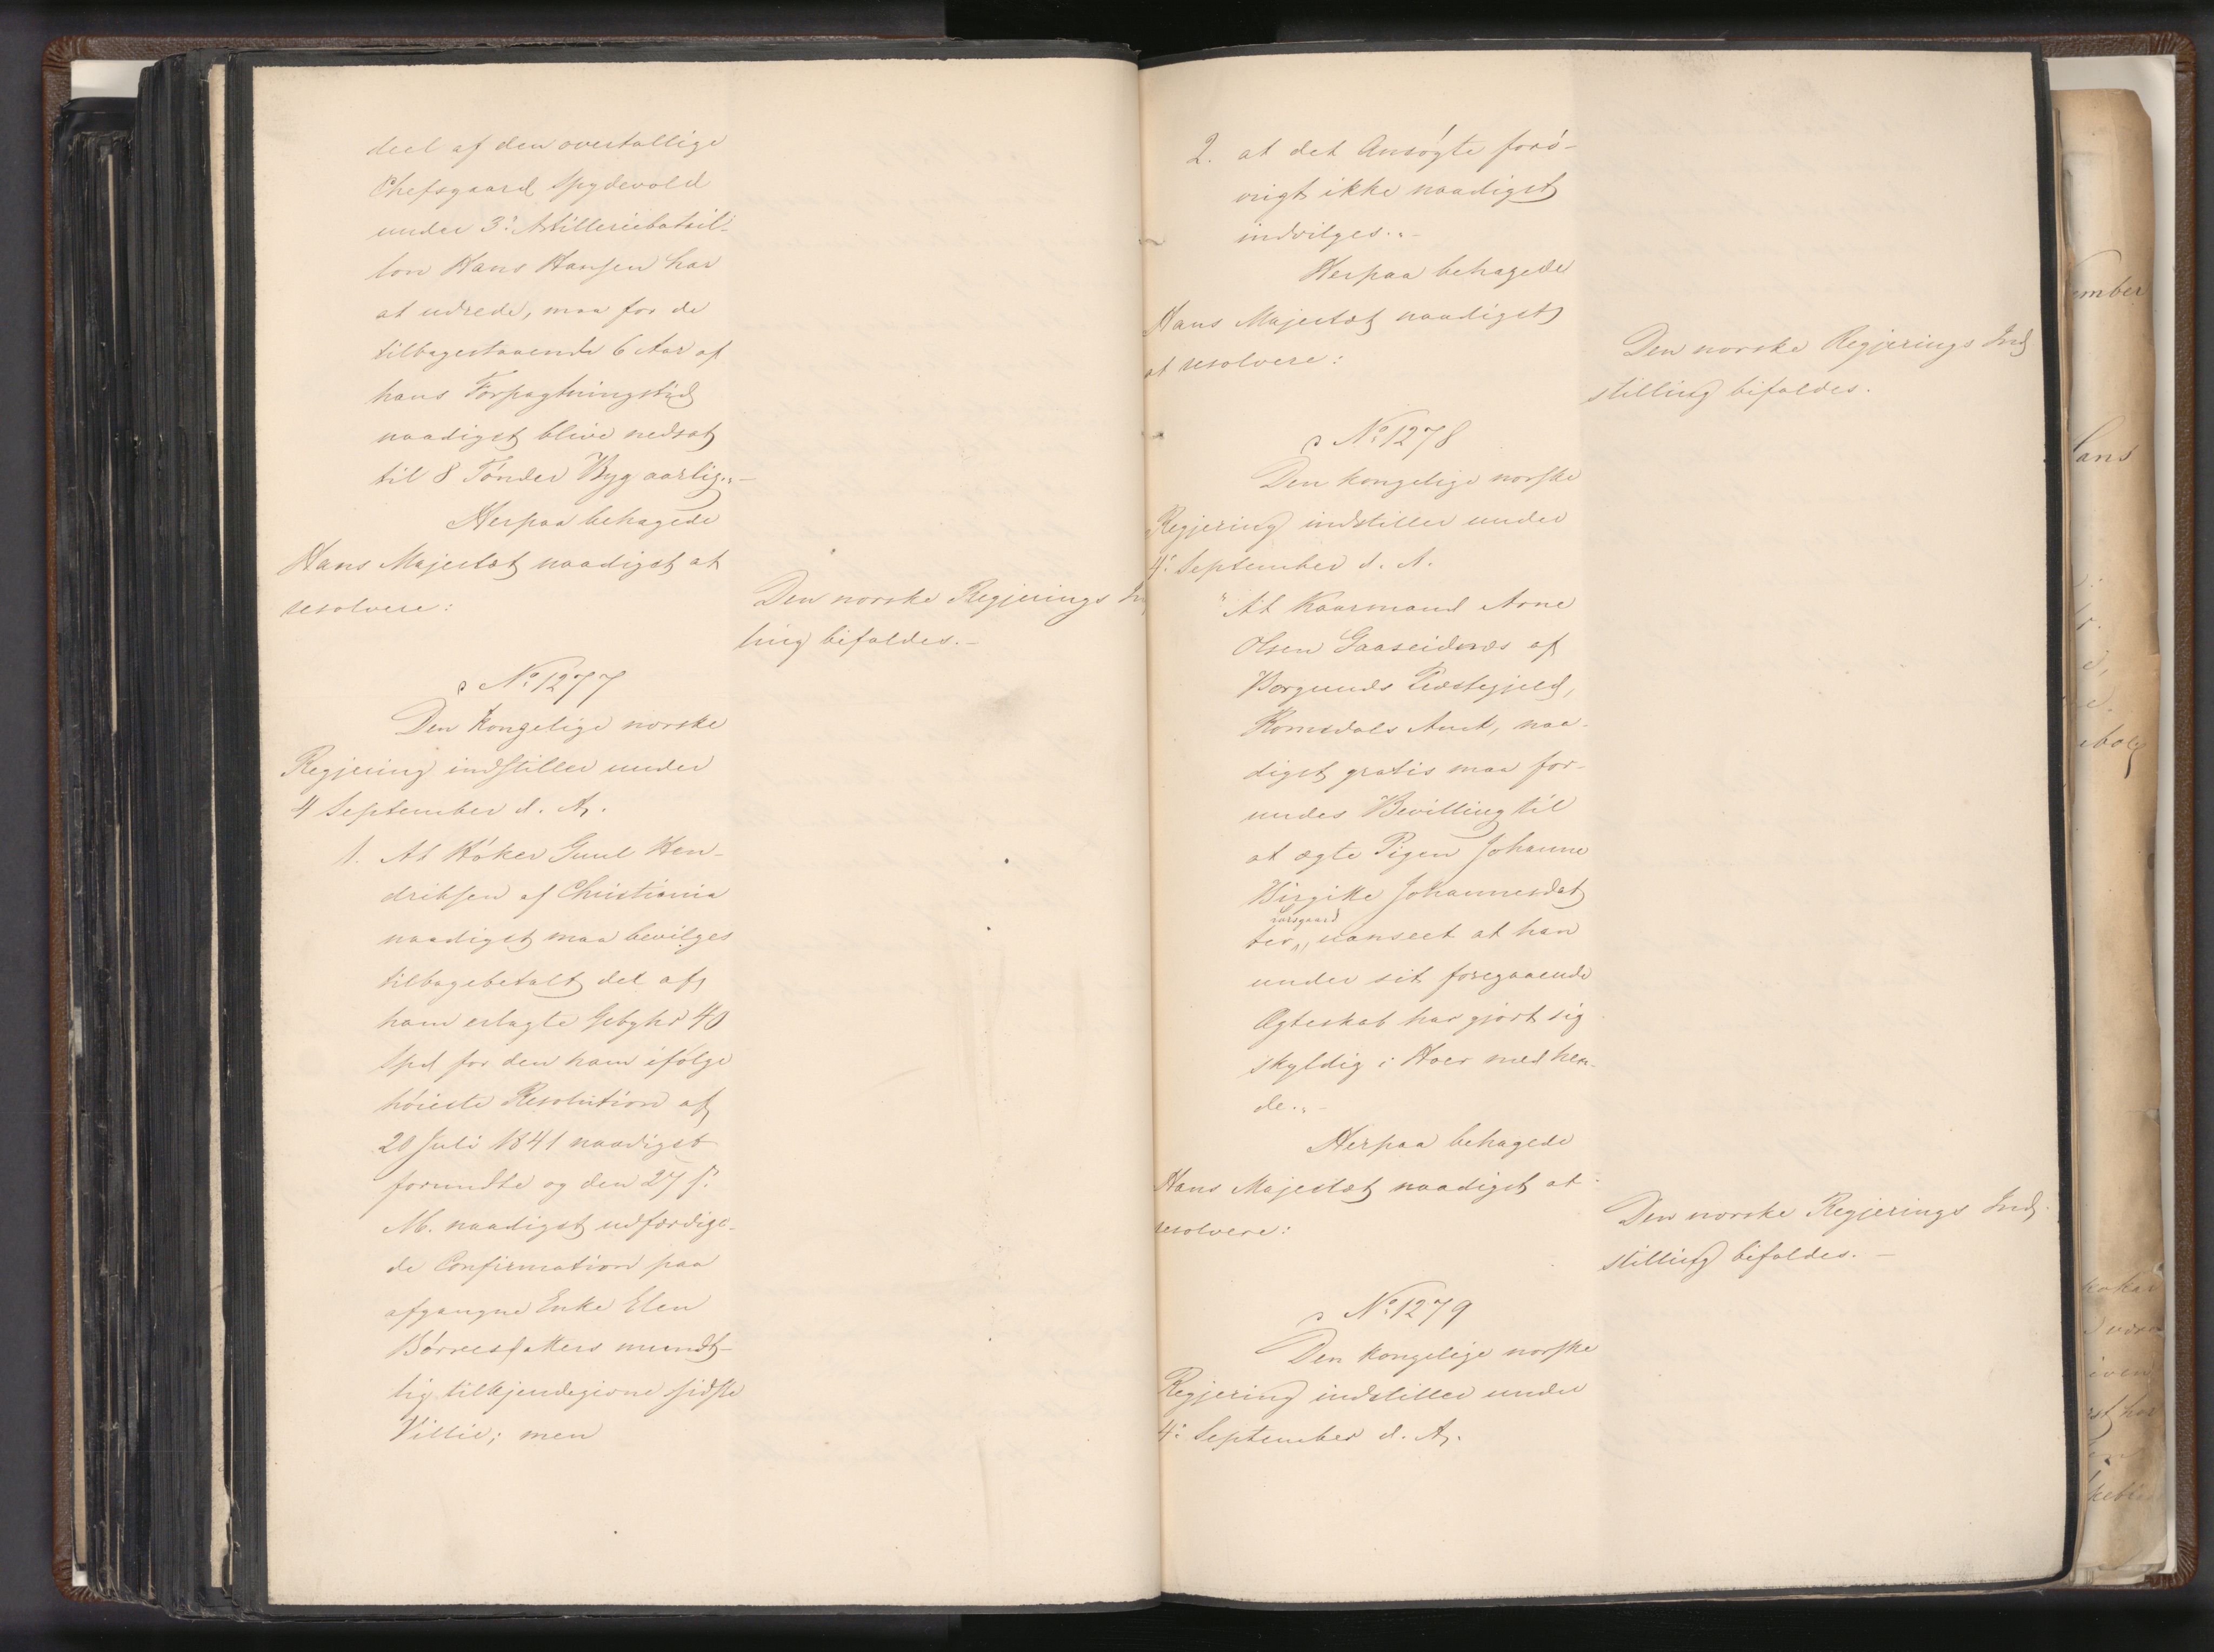 deel af den overtallige
Chefsgaard Spydevold
under 3: Artilleriebatail-
lon Hans Hansen har
at udrede, maa for de
tilbagestaaende 6 Aar af
hans Forpagtningstid
naadigst blive nedsat
til 8 Tønder Byg aarlig.„-
Herpaa behagede
Hans Majestæt naadigst at
resolvere:
Den norske Regjerings In
ling bifaldes.-
No 1277
Den kongelige norske
Regjering indstiller under
4 September d. A.
1. At Høker Guul Hen-
driksen af Christiania
naadigst maa bevilges
tilbagebetalt det af
ham erlagte Gebyhr 40
Spd for den ham ifølge
høieste Resolution af
20 Juli 1841 naadigst
forundte og den 27 s.
M. naadigst udfærdige-
de Confirmation paa
afgangne Enke Elen
Børresdatters mundt-
lig tilkjendegivne sidste
Villie; men
2. at det Ansøgte forø-
vrigt ikke naadigst
indvilges.„-
Herpaa behagede
Hans Majestæt naadigst
at resolvere:
Den norske Regjerings Ind
stilling bifaldes.
No 1278
Den kongelige norske
Regjering indstiller under
4: September d. A.
"At Kaarmand Arne
Olsen Gaaseidnæs af
Borgunds Præstegjeld,
Romsdals Amt, naa-
digst gratis maa for-
undes Bevilling til
at ægte Pigen Johanne
Birgitte Johannesdat
ter, uanseet at han
under sit foregaaende
Ægteskab har gjort sig
skyldig i Hoer med hen-
de.„-
Herpaa behagede
Hans Majestæt naadigst at
resolvere:
Den norske Regjerings Ind-
stilling bifaldes.-
No 1279
Den kongelige norske
Regjering indstiller under
4: September d. A.